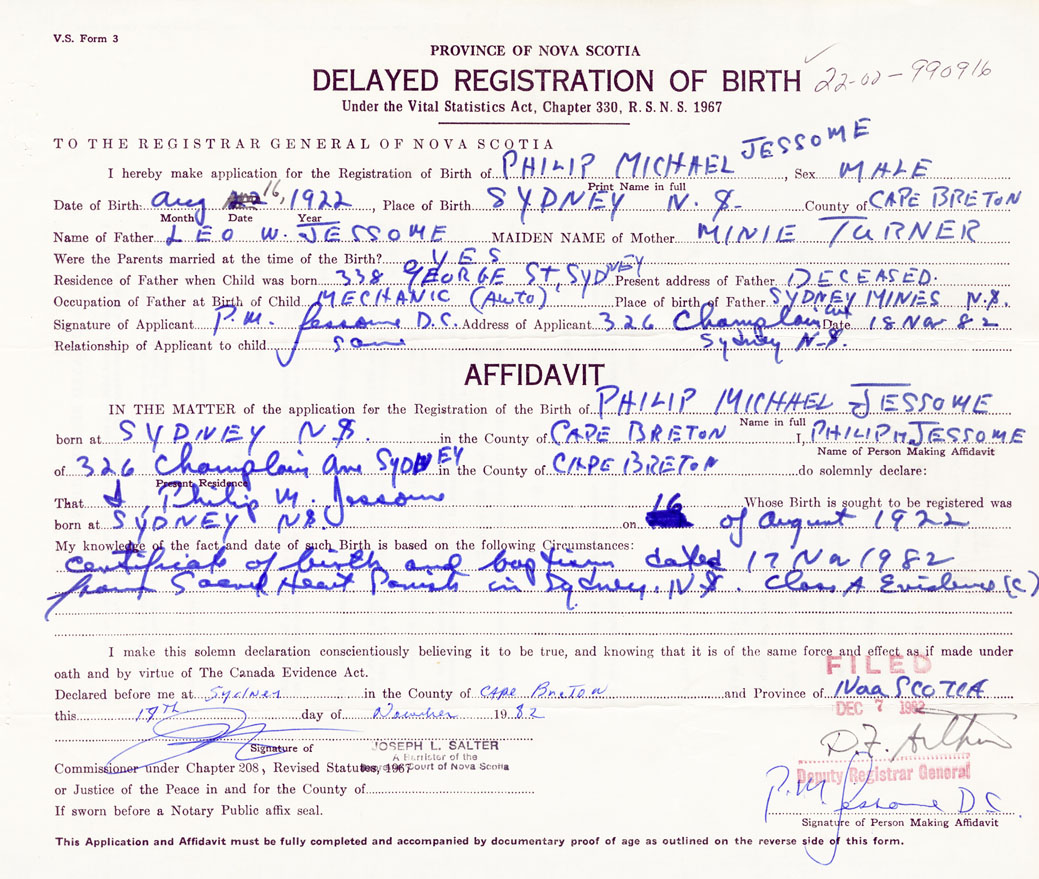 V.S. Form 3
PROVINCE OF NOVA SCOTIA
DELAYED REGISTRATION OF BIRTH 22-02-990916
Under the Vital Statistics Act, Chapter 330, R.S.N.S. 1967
TO THE REGISTRAR GENERAL OF NOVA SCOTIA
I hereby make application for the Registration of Birth of PHILIP MICHAEL JESSOME, Sex MALE
Print Name in full
Date of Birth: Aug 16, 1922, Place of Birth SYDNEY N.S. County of CAPE BRETON
Month Date Year
Name of Father LEO W. JESSOME MAIDEN NAME of Mother MINIE TURNER
Were the Parents married at the time of the Birth? YES
Residence of Father when Child was born 338 GEORGE ST, SYDNEY Present address of Father DECEASED.
Occupation of Father at Birth of Child MECHANIC (AUTO) Place of birth of Father SYDNEY MINES N.S.
Signature of Applicant P.M. Jessome D.C. Address of Applicant 326 Champlain Date 18 Nov 82
Relationship of Applicant to child same Sydney N.S.
AFFIDAVIT
IN THE MATTER of the application for the Registration of the Birth of PHILIP MICHAEL JESSOME
Name in full
born at SYDNEY N.S. in the County of CAPE BRETON I, PHILIP M JESSOME
Name of Person Making Affidavit
of 326 Champlain Ave SYDNEY in the County of CAPE BRETON do solemnly declare:
Present Residence
That I, Philip M. Jessome 16 Whose Birth is sought to be registered was
born at SYDNEY N.S. on of August 1922
My knowledge of the fact and date of such Birth is based on the following Circumstances:
certificate of birth and baptism dated 17 Nov 1982
from Sacred Heart Parish in Sydney. N.S. Class A Evidence (C)
I make this solemn declaration conscientiously believing it to be true, and knowing that it is of the same force and effect as if made under
oath and by virtue of The Canada Evidence Act.
FILED
Declared before me at Sydney in the County of CAPE BRETON and Province of Nova SCOTIA
this 19TH day of November 1982
DEC 7 1982
Signature of
JOSEPH L. SALTER
A Barrister of the
Supreme Court of Nova Scotia
Commissioner under Chapter 208, Revised Statutes, 1967
Deputy Registrar General
or Justice of the Peace in and for the County of
P.M. Jessome D.C.
If sworn before a Notary Public affix seal.
Signature of Person Making Affidavit
This Application and Affidavit must be fully completed and accompanied by documentary proof of age as outlined on the reverse side of this form.